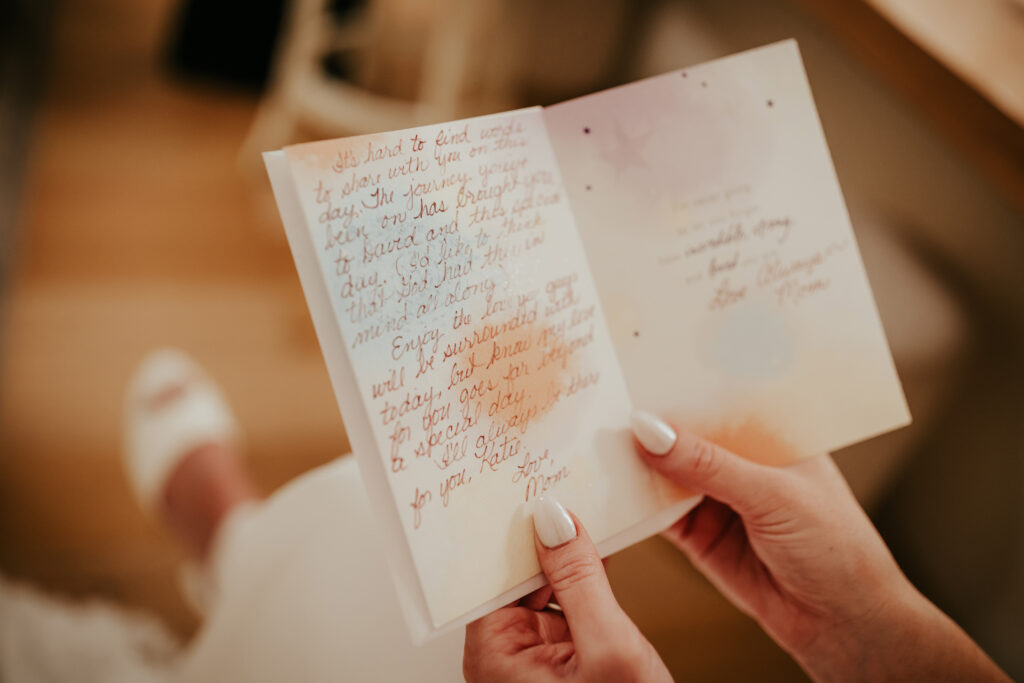 It's hard to find words
to share with you on this
day. The journey you've
been on has brought you
to David and this special
day. (I'd like to think
that God had this in
mind all along.)
Enjoy the love you guys
will be surrounded with
today, but know my love
for you goes far beyond
a special day.
I'll always be there
for you, Katie.
Love,
Mom
incredible strong
loved
Love Always
Mom